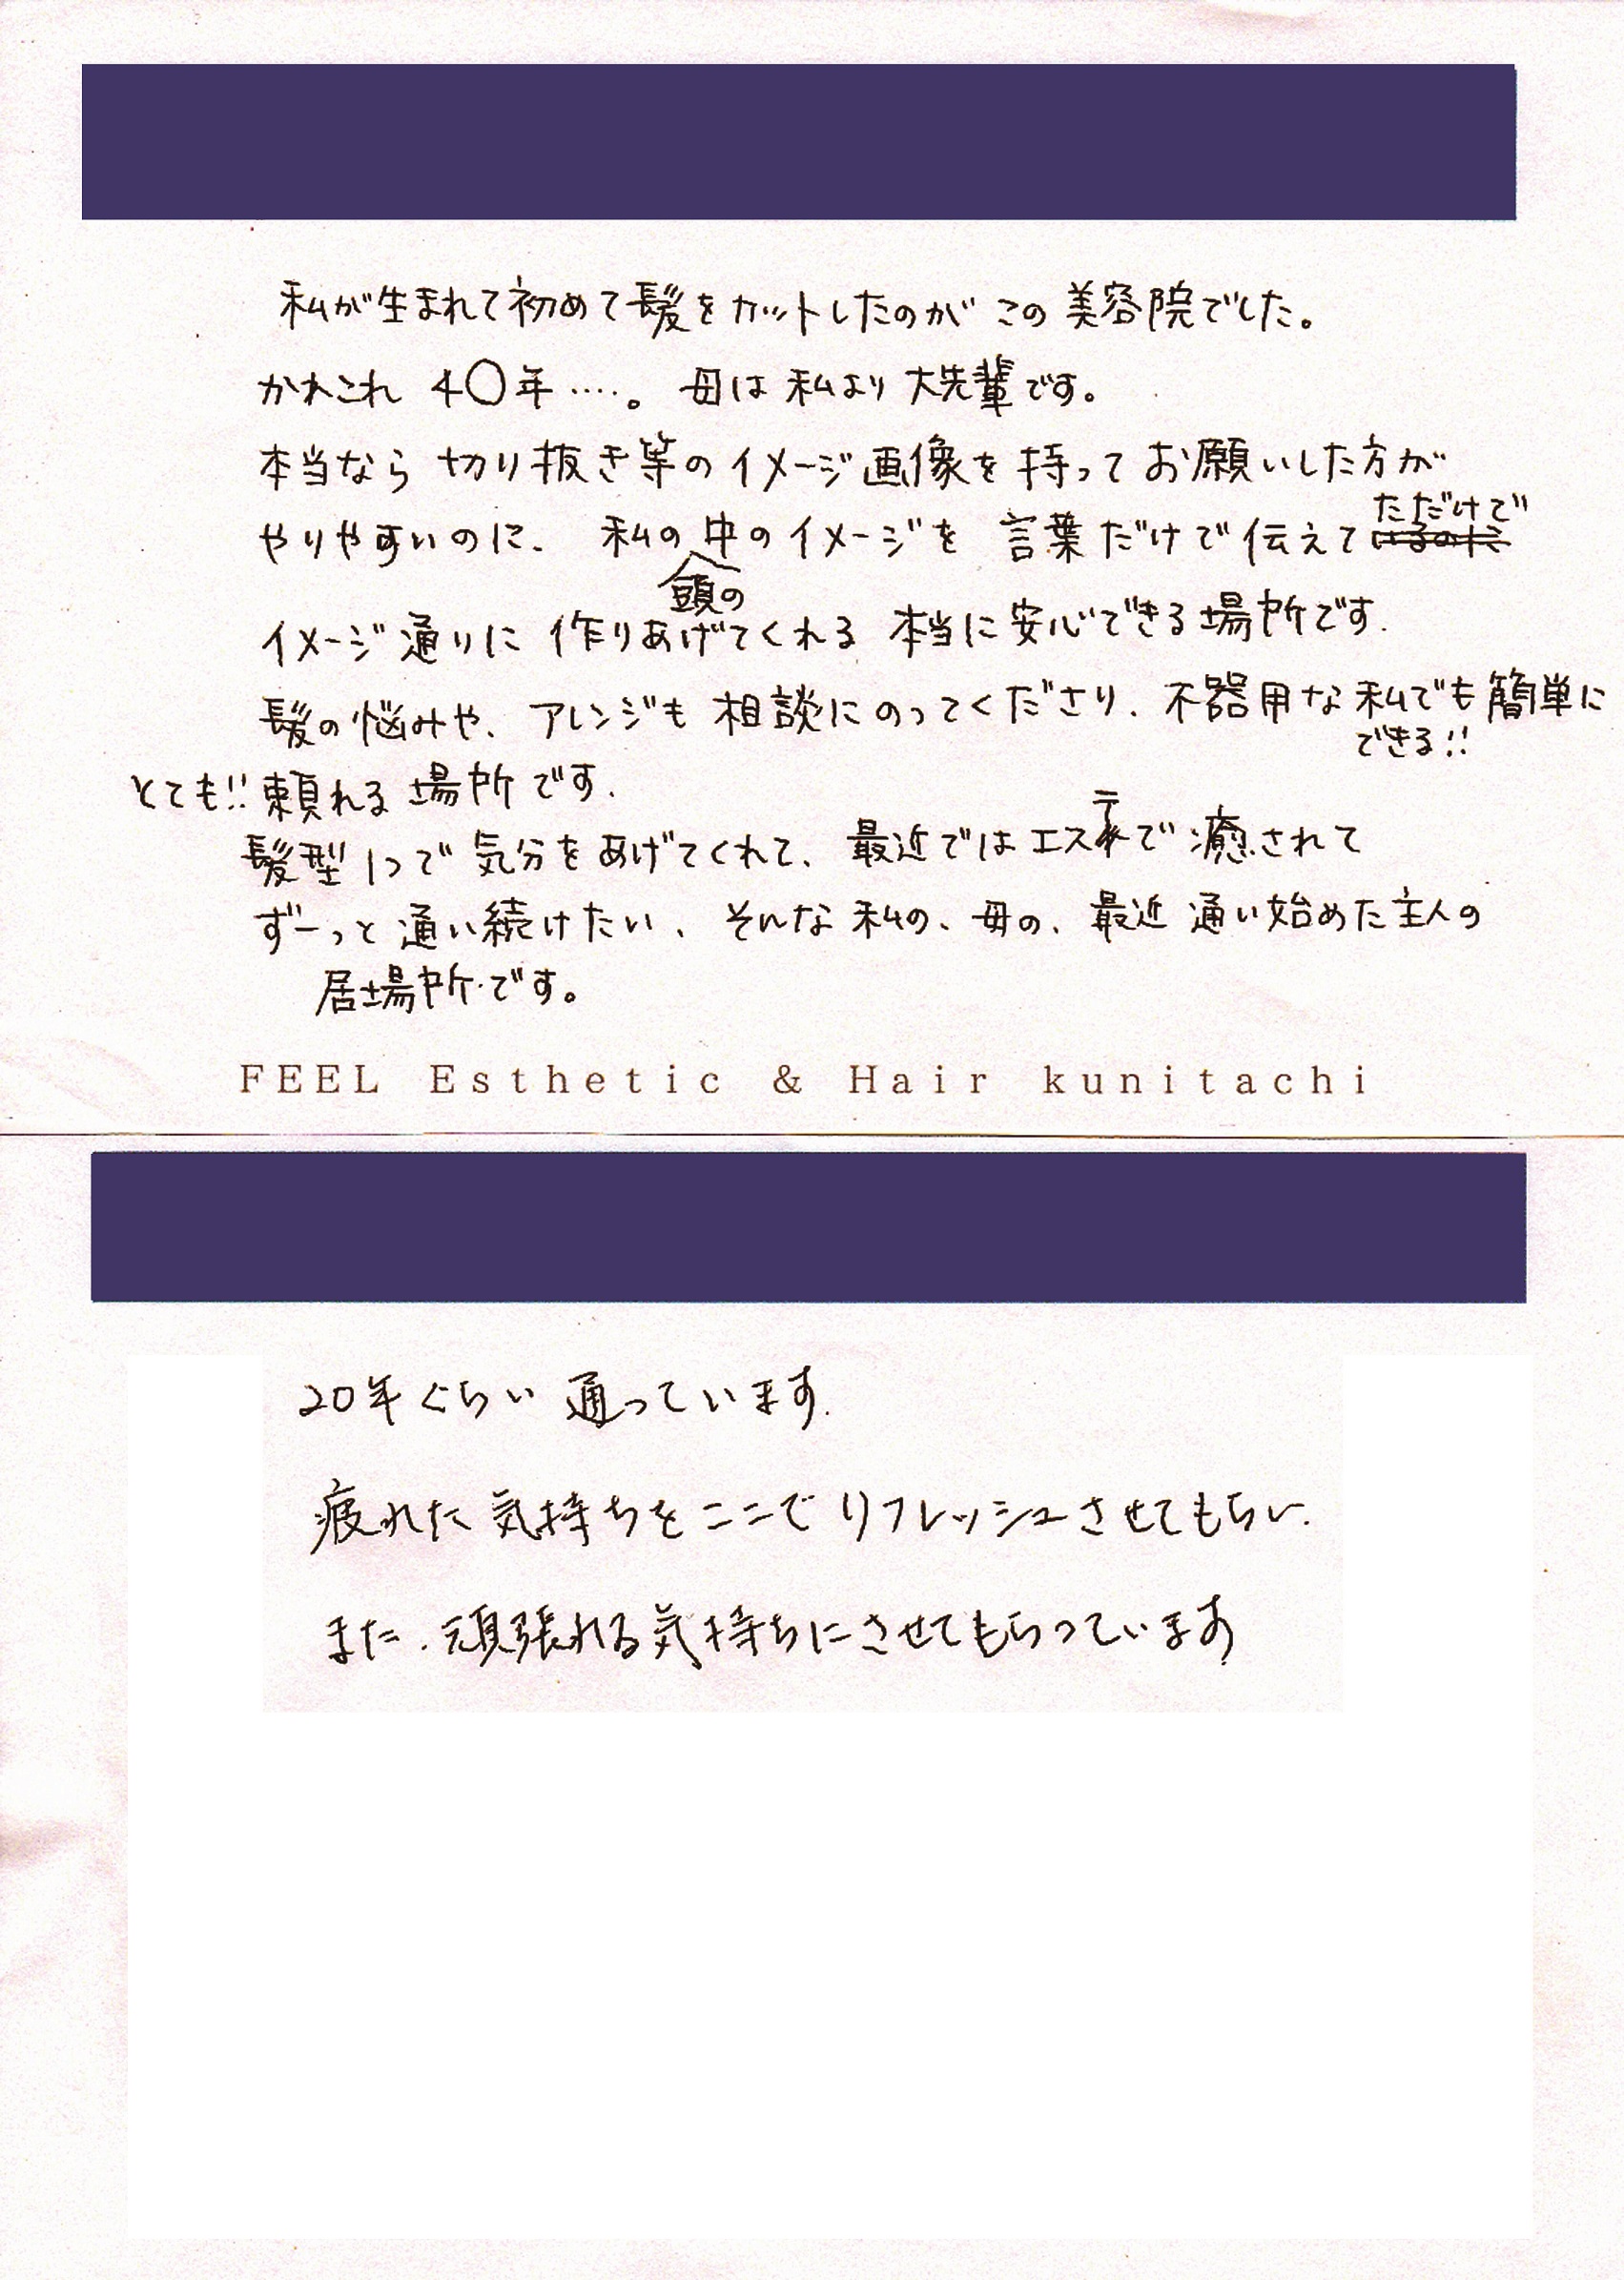 私が生まれて初めて髪をカットしたのが この 美容院でした。
かれこれ 4〇年‥‥。 母は 私より 大先輩です。
本当なら 切り抜き等の イメージ画像を 持って お願いした方が
やりやすいのに、 私の頭の中のイメージを 言葉だけで 伝えてただけで
イメージ通りに 作りあげてくれる 本当に安心できる場所です.
髪の悩みや、アレンジも 相談にのってくださり、不器用な 私でも簡単に
できる!!
とても!!頼れる 場所です.
髪型1つで 気分をあげてくれて、 最近ではエステで 癒されて
ずーっと 通い続けたい、 そんな 私の、母の、最近 通い始めた主人の
居場所です。
FEEL Esthetic & Hair kunitachi
20年ぐらい 通っています.
疲れた 気持ちを ここで リフレッシュさせてもらい.
また.頑張れる気持ちにさせてもらっています